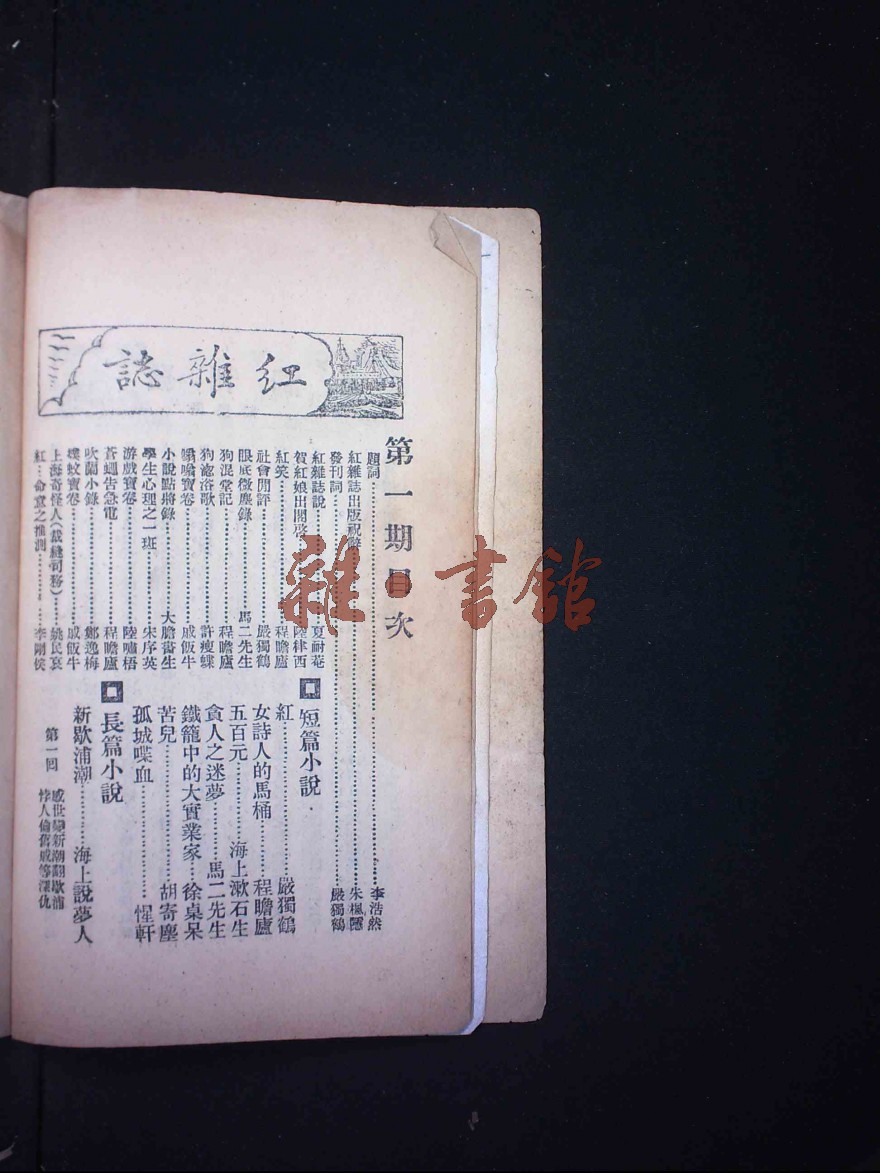 紅雜誌
第一期目次
題詞…………李浩然
紅雜誌出版祝辭…………朱楓隱
發刊詞…………嚴獨鶴
紅雜誌說…………夏耐菴
賀紅娘出閣啓…………陸律西
紅笑…………程瞻廬
社會閒評…………嚴獨鶴
眼底微塵錄…………馬二先生
狗混堂記…………程瞻廬
狗浴歌…………許瘦蝶
寶卷…………戚飯牛
小說點將錄…………大膽書生
學生心理之一斑…………宋序英
游戲寶卷…………陸嘯梧
蒼蠅告急電…………程瞻廬
吹蘭小錄…………鄭逸梅
蚊寶卷…………戚飯牛
上海奇怪人(裁縫司務)…………姚民哀
紅…命意之推測…………李剛俠
短篇小說
紅…………嚴獨鶴
女詩人的馬桶…………程瞻廬
五百元…………海上漱石生
貪人之迷夢…………馬二先生
鐵籠中的大實業家…………徐卓呆
苦兒…………胡寄塵
孤城喋血…………惺軒
長篇小說
新歇浦潮…………海上說夢人
第一回 感世變新潮翻歇浦
悖人倫舊戚等深仇
雜·書館